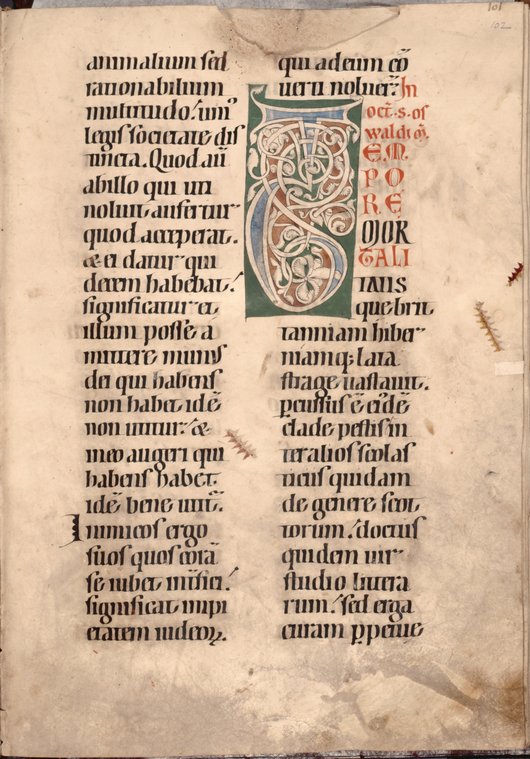 101
102
animalium sed
rationabilium
multitudo. un᷒
legis societate dis
tincta. Quod aū
ab illo qui uti
noluit aufertur
quod acceperat.
& ei datur qui
decem habebat.
significatur et
illum posse a
mittere munus
dei qui habens
non habet idē
non utitur. &
in eo augeri qui
habens habet.
idē bene utit̄.
Inimicos ergo
suos quos corā
se iubet int̄fici.
significat impi
etatem iudeoꝝ.
qui ad eum cō
uerti noluer̄. In
oct̄. s. os
waldi
TEM
PO
RE
MOR
TALI
TATIS
que brit
tanniam hiber
niamq; lata
strage uastauit.
p̲cussus ē eidē
clade pestis int̄
ceteralios scolas
ticus quidam
de genere scot
torum. doctus
quidem uir
studio littera
rum. sed erga
curam p̲petue